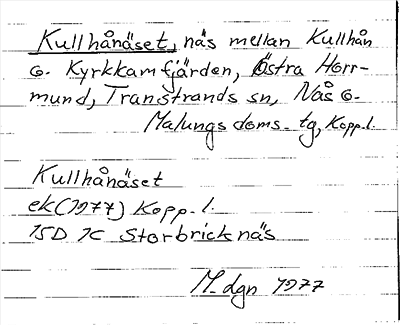 Kullhånäset, näs mellan Kullhån
o. Kyrkkamfjärden, Östra Horr-
mund, Transtrands sn, Nås o.
Malungs doms. tg, Kopp.l.
Kullhånäset
ek (1977) Kopp. l.
15D 7C Storbricknäs
M. dgn 1977